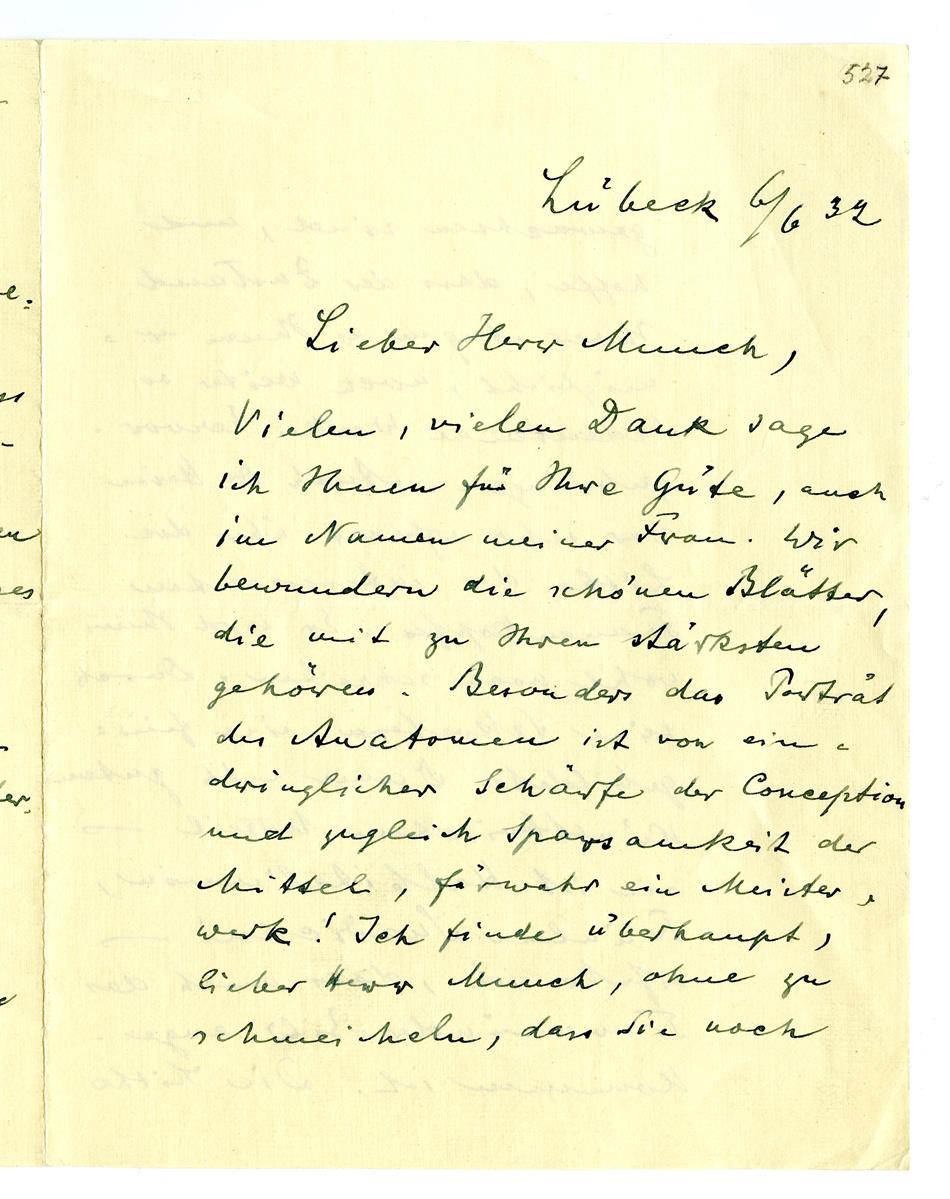 527
Lübeck 6/6 32
Lieber Herr Munch,
Vielen, vielen Dank sage
ich Ihnen für Ihre Güte, auch
im Namen meiner Frau. Wir
bewundern die schönen Blätter,
die mit zu Ihren stärksten
gehören. Besonders das Porträt
des Anatomen ist von ein=
dringlicher Schärfe der Conception
und zugleich Sparsamkeit der
Mittel, fürwahr ein Meister=
werk! Ich finde überhaupt,
lieber Herr Munch, ohne zu
schmeicheln, dass Sie noch